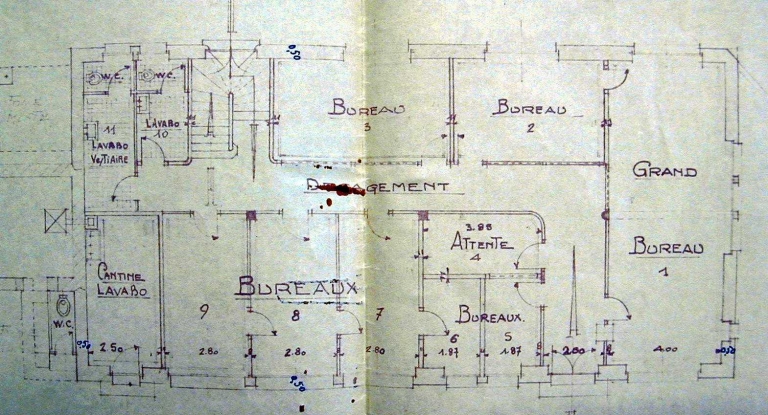 0,50
W.C.
W.C.
BUREAU
3
BUREAU
2
11
LAVABO
VESTIAIRE
LAVABO
10
11
11
GRAND
BUREAU
1
DEGAGEMENT
3.95
ATTENTE
4
CANTINE
LAVABO
BUREAUX
9
8
7
BUREAUX
6
5
W.C.
0,50
2.50
2.80
2.80
2.80
1.87
1.87
2.00
4.00
0,50
0,50